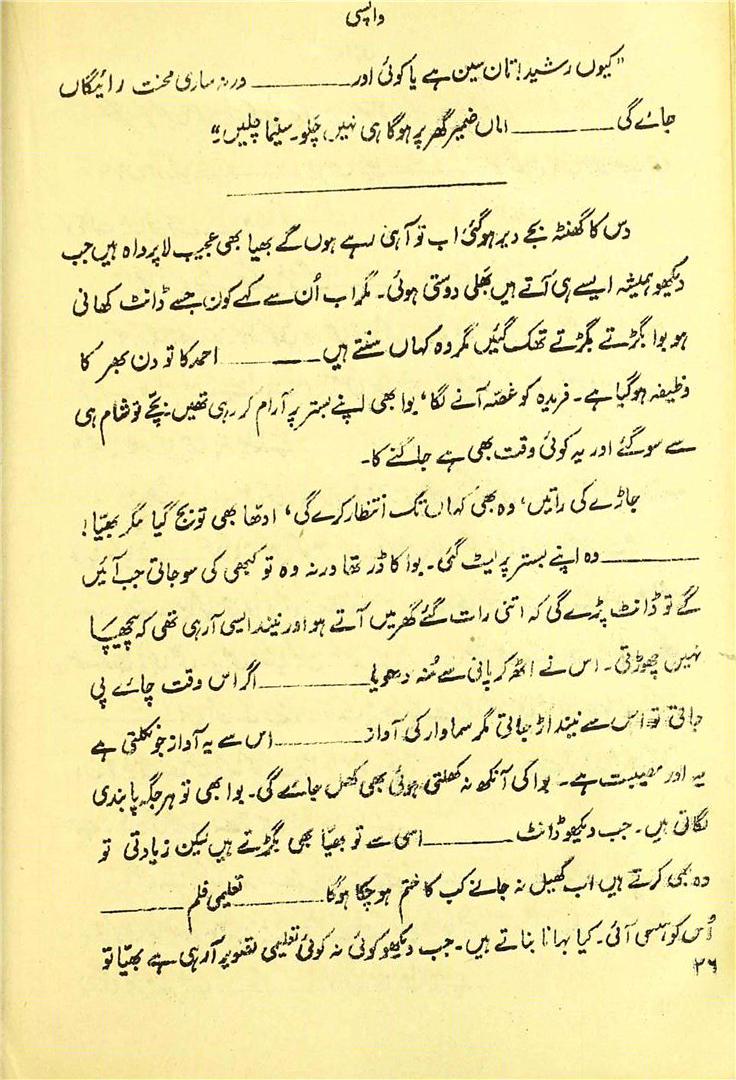 واپسی
"کیوں رشید! تان سین ہے یا کوئی اور ــــــــــ ورنہ ساری محنت رائیگاں
جائے گی ــــــــــ اماں ضمیر گھر پر ہوگا ہی نہیں چلو۔ سینما چلیں۔"
دس کا گھنٹہ بجے دیر ہو گئی اب تو آہی رہے ہوں گے بھیا بھی عجیب لاپرواہ ہیں جب
دیکھو ہمیشہ ایسے ہی آتے ہیں بھلی دوستی ہوئی۔ مگر اب اُن سے کہے کون جسے ڈانٹ کھانی
ہو بوا بگڑتے بگڑتے تھک گئیں مگر وہ کہاں سنتے ہیں ــــــــــ احمد کا تو دن بھر کا
وظیفہ ہوگیا ہے۔ فریدہ کو غصّہ آنے لگا، بوا بھی اپنے بستر پر آرام کر رہی تھیں بچّے تو شام ہی
سے سو گئے اور یہ کوئی وقت بھی ہے جاگنے کا۔
جاڑے کی راتیں، وہ بھی کہاں تک انتظار کرے گی، ادھا بھی تو بج گیا مگر بھیّا!
ــــــــــ وہ اپنے بستر پر لیٹ گئی۔ بوا کا ڈر تھا ورنہ وہ تو کبھی کی سو جاتی جب آئیں
گے تو ڈانٹ پڑے گی کہ اتنی رات گئے گھر میں آتے ہو اور نیند ایسی آرہی تھی کہ پیچھا
نہیں چھوڑتی۔ اس نے اٹھ کر پانی سے مُنہ دھویا ــــــــــ اگر اس وقت چائے پی
جاتی تو اس سے نیند اڑ جاتی مگر سماوار کی آواز ــــــــــ اس سے یہ آواز جو نکلتی ہے
یہ اور مصیبت ہے۔ بوا کی آنکھ نہ کھلتی ہوئی بھی کھل جائے گی۔ بوا بھی تو ہر جگہ پابندی
لگاتی ہیں۔ جب دیکھو ڈانٹ ــــــــــ اسی سے تو بھیّا بھی بگڑتے ہیں لیکن زیادتی تو
وہ بھی کرتے ہیں اب کھیل نہ جانے کب کا ختم ہو چکا ہوگا ــــــــــ تعلیمی فلم ــــــــــ
اُس کو ہنسی آئی۔ کیا بہانا بناتے ہیں۔ جب دیکھو کوئی نہ کوئی تعلیمی تصویر آرہی ہے بھیّا تو
۲۶